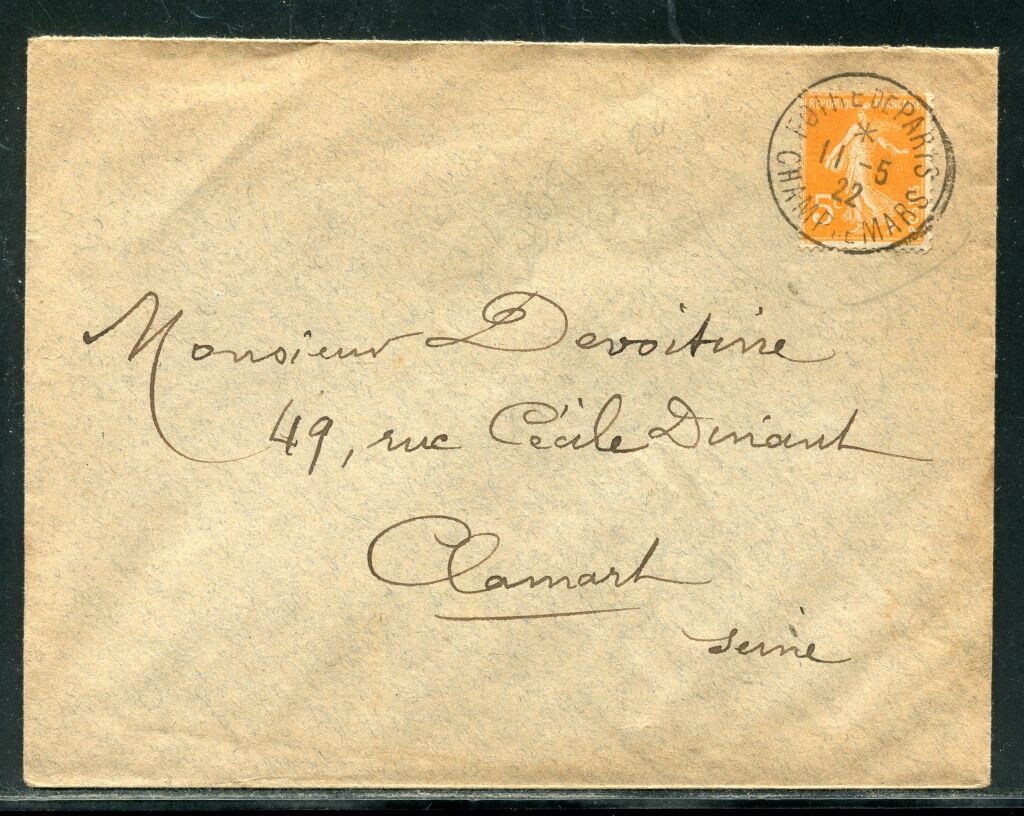 REPUBLIQUE FRANÇAISE
5c
FOIRE DE PARIS
*
11 -5
22
CHAMP DE MARS
Monsieur Devoitine
49, rue Cécile Dinant
Clamart
Seine